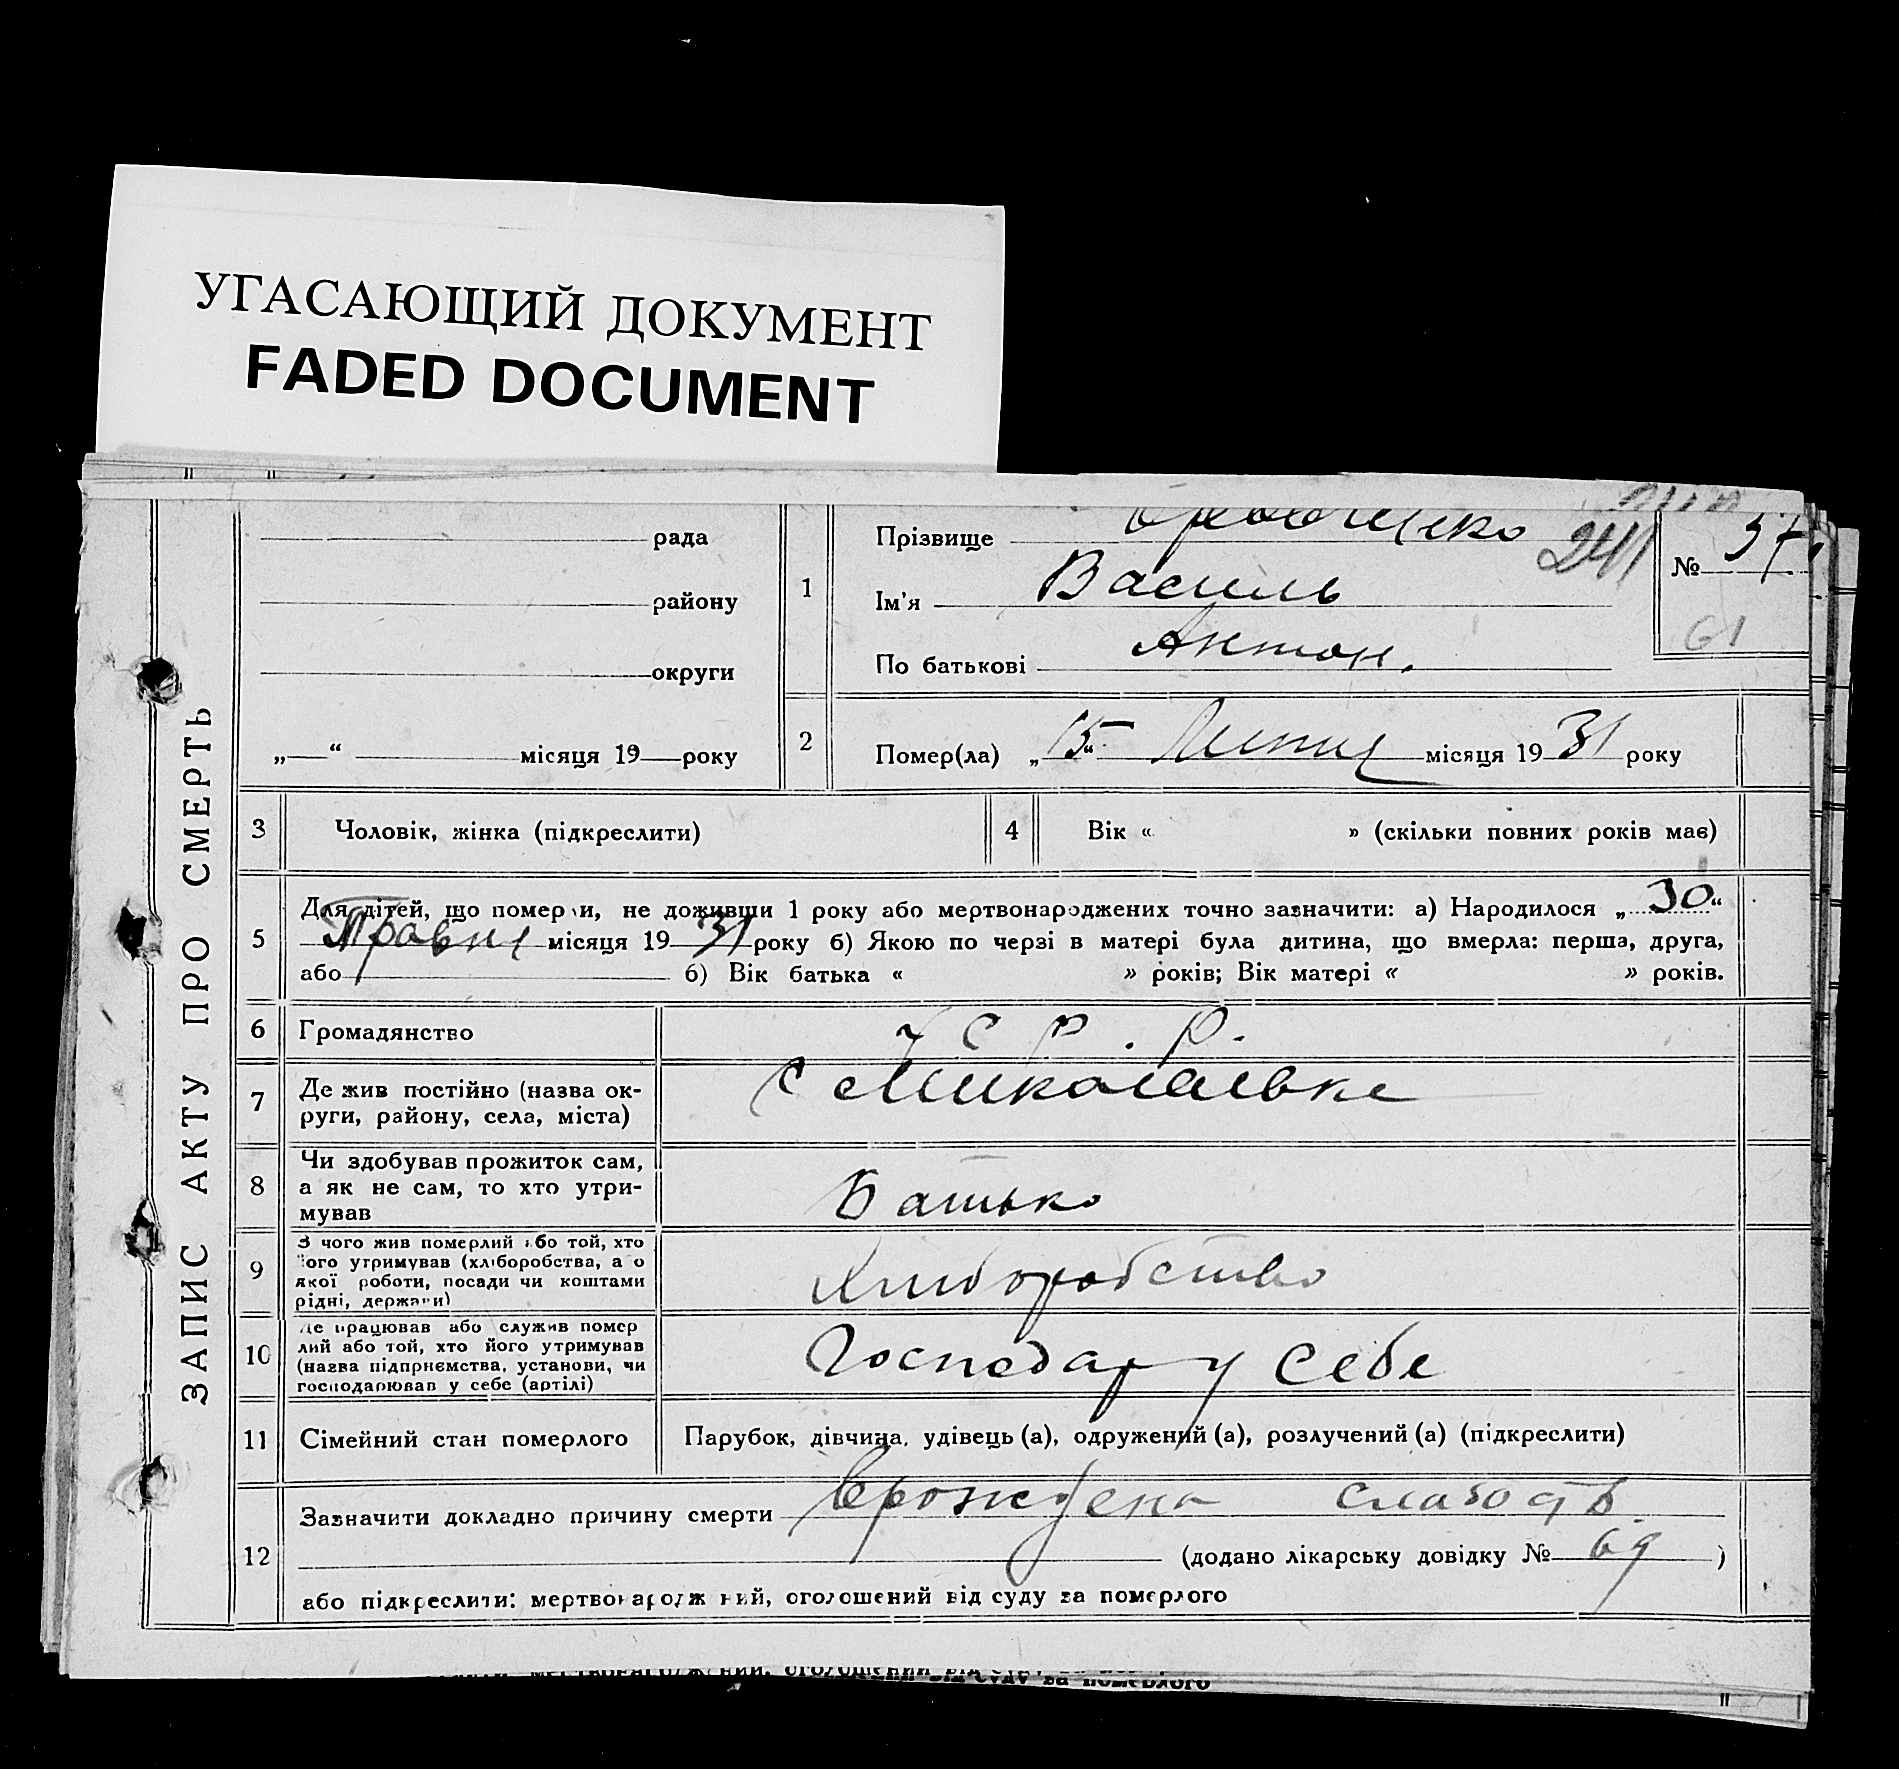 УГАСАЮЩИЙ ДОКУМЕНТ
FADED DOCUMENT
ЗАПИС АКТУ ПРО СМЕРТЬ
рада
району
округи
„ “ місяця 19 року
1
Прізвище
241
№ 37
Ім'я Василь
61
По батькові Антон.
2
Помер(ла) „15“ Липня місяця 1931 року
3 Чоловік, жінка (підкреслити)
4 Вік « » (скільки повних років має)
5
Для дітей, що померли, не доживши 1 року або мертвонароджених точно зазначити: а) Народилося „30“
Травня місяця 1931 року б) Якою по черзі в матері була дитина, що вмерла: перша, друга,
або б) Вік батька « » років; Вік матері « » років.
6 Громадянство У С Р . Р.
7 Де жив постійно (назва ок-
руги, району, села, міста)
с Миколаевке
8 Чи здобував прожиток сам,
а як не сам, то хто утри-
мував
Батько
9 З чого жив померлий або той, хто
його утримував (хліборобства, або
якої роботи, посади чи коштами
рідні, держави)
Хліборобство
10 Де працював або служив помер
лий або той, хто його утримував
(назва підприємства, установи, чи
господарював у себе (артілі)
Господар у себе
11 Сімейний стан померлого Парубок, дівчина, удівець (а), одружений (а), розлучений (а) (підкреслити)
12
Зазначити докладно причину смерти врождена слабость
(додано лікарську довідку № 69 )
або підкреслити: мертвонароджений, оголошений від суду за померлого